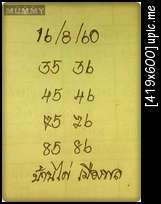 MUMMY
16/8/60
35 36
45 46
75 76
85 86
บ้านไผ่ เมืองพล
[419x600] upic.me